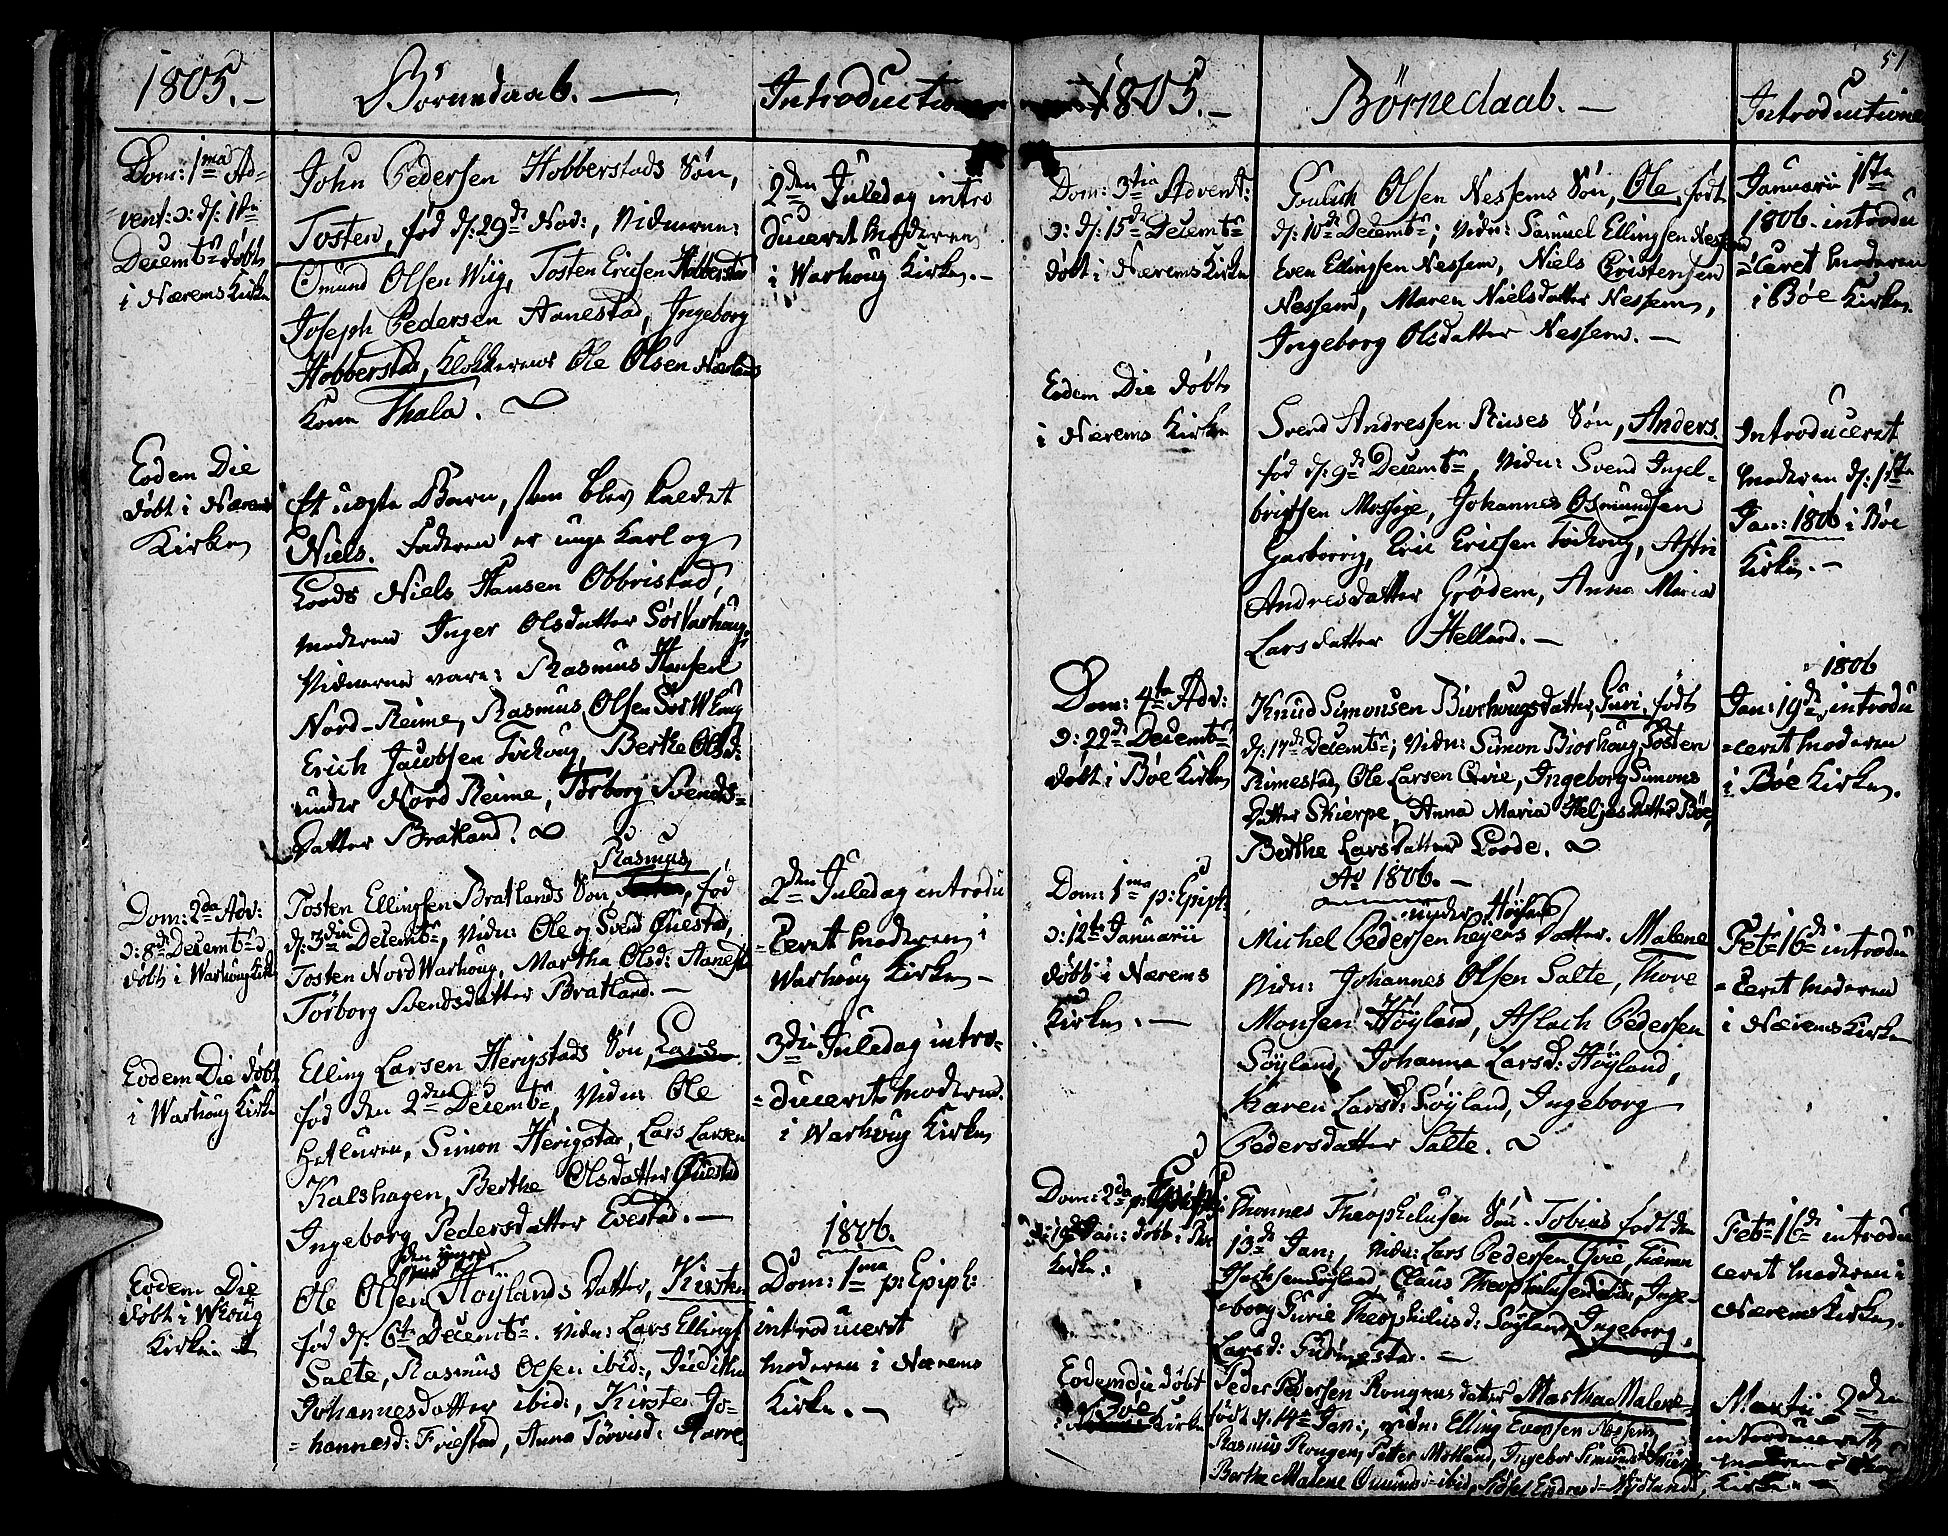 1805.
Børnedaab.
Introductio
Dom: 1ma Ad-
vent: ɔ: d: 1ste
Decembr døbt
i Nærems Kirke
John Pedersen Hobberstads Søn,
Tosten, fød d: 29de Nov:, Vidnerne:
Omund Olsen Wiig, Tosten Ericsen Hobberstad
Joseph Pedersen Aanestad, Ingeborg
Hobberstad, Klokkerens Ole Olsen Nærlands
Kone Thala.
2den Juledag intro
duceret Moderen
i Warhoug Kirke.
Eodem Die
døbt i Nærems
Kirke
Et uægte Barn, som blev kaldet
Niels. Faderen er unge Karl og
Niels Hansen Obbristad,
Moderen Inger Olsdatter Sør Varhoug.
Vidnerne vare: Rasmus Hansen
Nord-Reime, Rasmus Olsen Sør WHoug
Erich Jacobsen Tockoug, Berthe Olsd:
under Nord Reime, Torborg Svends-
datter Bratland.
Dom: 2da Adv:
ɔ: 8de Decembr
døbt i Warhoug Kirke
Rasmus
Tosten Ellingsen Bratlands Søn, fød
d: 3die Decembr, Vidn: Ole og Svend Qvestad,
Tosten Nord Warhoug, Martha Olsd: Aanestad
Torborg Svendsdatter Bratland.
2den Juledag introdu
ceret Moderen i
Warhoug Kirke
Eodem Die døbt
i Warhoug Kirke
Elling Larsen Herigstads Søn, Lars
fød den 2den Decembr, Vidn: Ole
Simon Herigstad, Lars Larsen
Kalshagen, Berthe Olsdatter Qvestad
Ingeborg Pedersdatter Evestad.
3die Juledag intro-
duceret Moderen
i Warhoug Kirke
Eodem Die
døbt i WHoug
Kirke
den yngre
Ole Olsen Höÿlands Datter, Kirsten
fød d: 6te Decembr. Vidn: Lars Ellings:
Salte, Rasmus Olsen ibid:, Juditha
Johannesdatter ibid:, Kirsten Jo-
hannesd: Friestad, Anna Torvisd:
1806.
Dom: 1ma p: Epiph:
introduceret
Moderen i Nærems
Kirke.
51
1805.
Børnedaab.
Introductione
Dom: 3tia Advent:
ɔ: d: 15de Decembr
døbt i Nærems Kirke
Olsen Nessems Søn, Ole, født
d: 10de Decembr; Vidn: Samuel Ellingsen Nessem
Even Ellingsen Nessem, Niels Christensen
Nessem, Maren Nielsdatter Nessem,
Ingeborg Olsdatter Nessem.
Januarii 1ste
1806. introdu
ceret Moderen
i Bøe Kirke.
Eodem Die døbt
i Nærems Kirke
Svend Andressen Ruses Søn, Anders.
fød d: 9de Decembr, Vidn: Svend Ingel-
brigtsen Mossige, Johannes Osmundsen
Garborrig, Eric Ericsen Tockoug, Astri
Andresdatter Grødem, Anna Maria
Larsdatter Helland.
Introduceret
Moderen d: 1ste
Jan: 1806 i Bøe
Kirke.
Dom: 4ta Adv:
ɔ: 22de Decembr
døbt i Bøe Kirke
Knud Simonsen Biorhougs datter, Guri, født
d: 17de Decembr; Vidn: Simon Biorhoug, Tosten
Rimestad, Ole Larsen Qvie, Ingeborg Simons
Datter Skierpe, Anna Maria Heljesdatter Bøe,
Berthe Larsdatter Lode.
1806
Jan: 19de introdu
ceret Moderen
i Bøe Kirke.
Ao 1806.
Dom: 1ma p: Epiph:
ɔ: 12te Januarii
døbt i Nærems
Kirke.
under Høyland
Michel Pedersen Datter. Malene
Vidn: Johannes Olsen Salte, Thore
Monsen Høyland, Aslach Pedersen
Søyland, Johanna Larsd: Høyland,
Karen Larsd: Søyland, Ingeborg
Pedersdatter Salte.
Feb: 16de introdu
ceret Moderen
i Nærems Kirke
Dom: 2da p: Epiph:
ɔ: 19de Jan: døbt i
Kirke.
Thonnes Theophilusen Søn Tobias født den
13de Jan:, Vidn: Lars Pedersen Qvie,
Søyland, Claus Theophilusen, Inge-
borg Gurie Theophilusd: Søyland, Ingeborg
Larsd:
Feb: 16de introdu
ceret Moderen i
Nærems Kirke.
Eodem die døbt
i Bøe Kirke
Peder Pedersen Rongens datter Martha Malene
født d: 14de Jan:, vidn: Elling Evensen Nessem,
Rasmus Rongen, Petter Motland, Ingebor
Berthe Malene ibid,
Martii 2den
introduceret
Moderen i
Kirke.